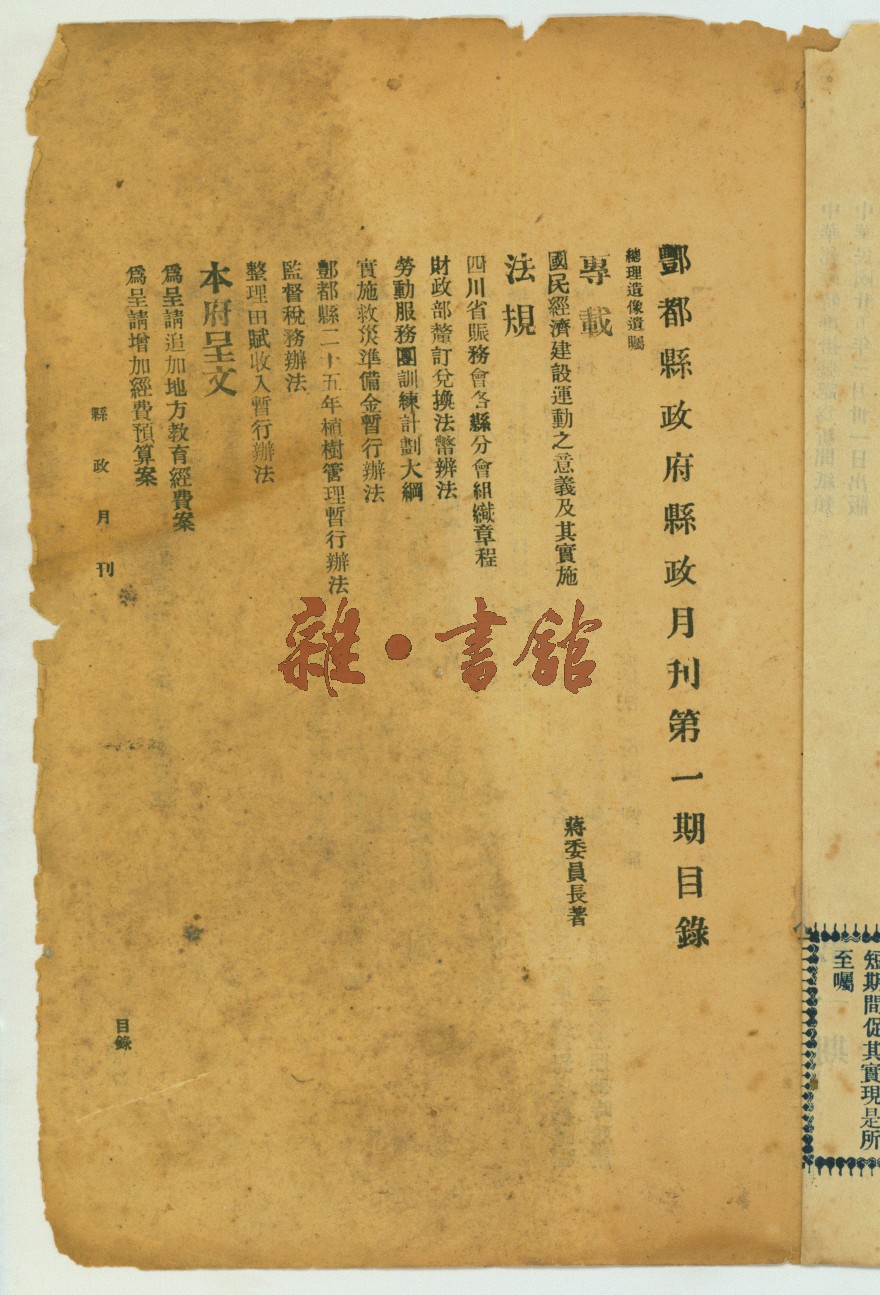 酆都縣政府縣政月刊第一期目錄
總理遺像遺囑
專載
國民經濟建設運動之意義及其實施 蔣委員長著
法規
四川省賑務會各縣分會組織章程
財政部釐訂兌換法幣辦法
勞動服務團訓練計劃大綱
實施救災準備金暫行辦法
酆都縣二十五年植樹管理暫行辦法
監督稅務辦法
整理田賦收入暫行辦法
本府呈文
爲呈請追加地方教育經費案
爲呈請增加經費預算案
縣政月刊 目錄
短期間促其實現是所
至囑
雜·書館